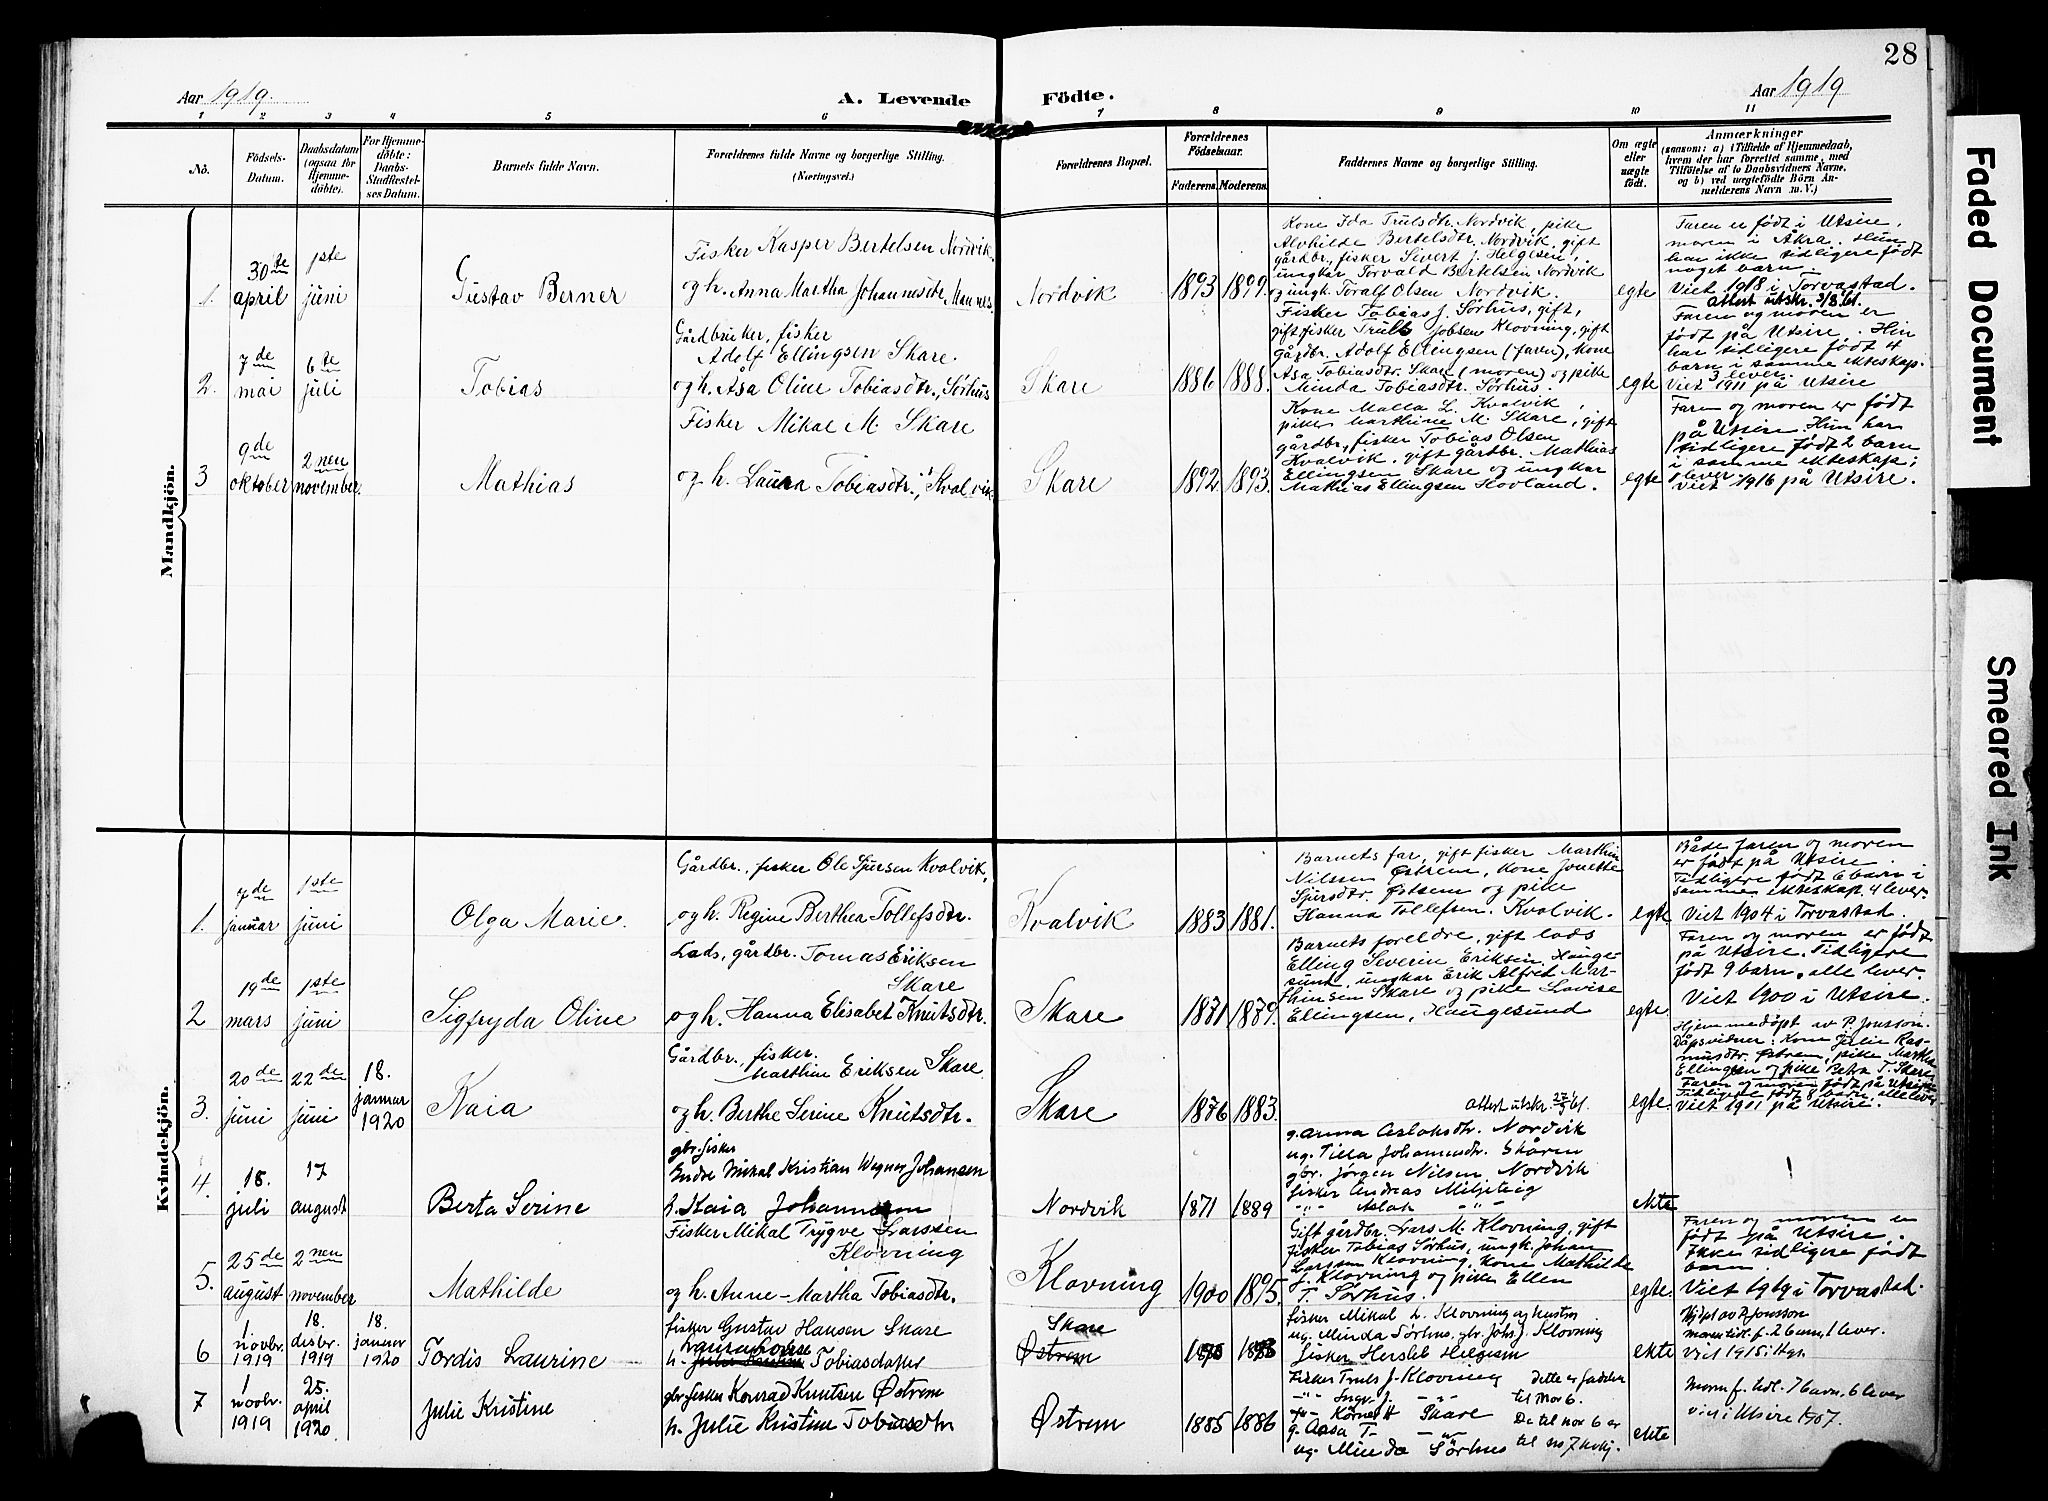 28
Aar 1919.
A. Levende Födte.
Aar 1919
1 2 3 4 5 6 7 8 9 10 11
No.
Födsels-
Datum.
Daabsdatum
(ogsaa for
Hjemme-
döbte).
For Hjemme-
döbte:
Daabs-
Stadfæstel-
ses Datum.
Barnets fulde Navn.
Forældrenes fulde Navne og borgerlige Stilling.
(Næringsvei.)
Forældrenes Bopæl.
Forældrenes
Födselsaar.
Faderens. Moderens.
Faddernes Navne og borgerlige Stilling.
Om ægte
eller
uægte
födt.
Anmærkninger
(saasom: a) i Tilfælde af Hjemmedaab,
hvem der har forrettet samme, med
Tilföielse af to Daabsvidners Navne.
og b) ved uægtefödte Börn An-
melderens Navn m. V.)
Mandkjön.
1.
30te
april
1ste
juni
Gustav Berner
Fisker Kasper Bertelsen Nordvik.
og h. Anna Martha Johannesdtr. Mannes.
Nordvik
1893
1899.
Kone Ida Trulsdtr. Nordvik, pike
Alvhilde Bertelsdtr. Nordvik, gift
gårdbr., fisker Sivert J. Helgesen,
ungkar Torvald Bertelsen Nordvik
og ungk. Toralf Olsen Nordvik.
egte
Faren er født i Utsire,
moren i Åkra. Hun
har ikke tidligere født
noget barn.
Viet 1918 i Torvastad.
Attest utskr. 3/8 61.
2.
7de
mai
6te
juli
Tobias
Gårdbruker, fisker
Adolf Ellingsen Skare.
og h. Åsa Oline Tobiasdtr., Sørhus
Skare
1886
1888.
Fisker Tobias J. Sørhus, gift,
gift fisker Truls Jobsen Klovning, gift
gårdbr. Adolf Ellingsen (faren), kone
Åsa Tobiasdtr. Skare (moren) og pike
Minda Tobiasdtr. Sørhus.
egte
Faren og moren er
født på Utsire. Hun
har tidligere født 4
barn i samme ekteskap.
3 lever.
Viet 1911 på Utsire
3
9de
oktober
2nen
november.
Mathias
Fisker Mikal M. Skare
og h. Laura Tobiasdtr., Kvalvik
Skare
1892
1893.
Kone Malla L. Kvalvik,
pike Marthine M. Skare, gift
gårdbr., fisker Tobias Olsen
Kvalvik, gift gårdbr. Mathias
Ellingsen Skare og ungkar
Mathias Ellingsen Hovland.
egte
Faren og moren er født
på Utsire. Hun har
tidligere født 2 barn
i samme ekteskap;
1 lever.
Viet 1916 på Utsire.
Kvindekjön.
1.
7de
januar
1ste
juni
Olga Marie.
Gårdbr., fisker Ole Sjursen Kvalvik,
og h. Regine Berthea Tollefsdtr.
Kvalvik
1883
1881.
Barnets far, gift fisker Marthin
Nilssen Østrem, kone Jonette
Sjursdtr. Østrem og pike
Hanna Tollefsen, Kvalvik.
egte
Både faren og moren
er født på Utsire.
Tidligere født 6 barn i
samme ekteskap, 4 lever.
Viet 1904 i Torvastad.
2
19de
mars
1ste
juni
Sigfryda Oline
Lods, gårdbr. Tomas Eriksen
Skare
og h. Hanna Elisabet Knutsdtr.
Skare
1871
1879.
Barnets foreldre, gift lods
Elling Severin Eriksen, Hauge-
sund, ungkar Erik Alfred Mar-
thinsen Skare og pike Lovise
Ellingsen, Haugesund
egte
Faren og moren er født
på Utsire. Tidligere
født 9 barn, alle lever.
Viet 1900 i Utsire.
3.
20de
juni
22de
juni
18.
januar
1920
Kaia
Gårdbr., fisker.
Marthin Eriksen Skare.
og h. Berthe Serine Knutsdtr.
Skare
1876
1883.
Attest utskr. 27/9 61.
egte.
Hjemmedøpt av P. Jonsson.
Dåpsvidner: Kone Julie Ras-
musdtr. Østrem, pike Martha
Ellingsen og pike Beta T. Skare
Faren og moren født på Utsire
Tidligere født 8 barn, alle lever
Viet 1901 på Utsire.
4.
18.
juli
17
august
Berta Serine
gbr. fisker
Endre Mikal Kristian Wegner Johansen
h. Kaia Johannesen
Nordvik
1871
1889
g. Anna Aslaksdtr. Nordvik
ug. Tilla Johannesdtr. Skåren
gbr. Jørgen Nilsen Nordvik
fisker Andreas Miljeteig
-"- Aslak -"-
ekte
5.
25de
august
2nen
november
Mathilde
Fisker Mikal Trygve Larssen
Klovning
og h. Anne-Martha Tobiasdtr.
Klovning
1900
1895.
Gift gårdbr. Lars M. Klovning, gift
fisker Tobias Sørhus, ungk. Johan
Larssen Klovning, kone Mathilde
J. Klovning og pike Ellen
T. Sørhus.
egte.
Faren og moren er
født på Utsire.
Ikke tidligere født
barn.
Viet 1919 i Torvastad.
6
1
novbr.
1919
18.
desbr.
1919
18.
januar
1920
Tordis Laurine
fisker Gustav Hansen Skare
h. Tobiasdatter
Skare
Østrem
fisker Mikal h. Klovning og hustru
ug. Minda Sørhus, gbr. Joh. J. Klovning
fisker Hersleb Helgesen
ekte
Hj.dpt av P. Jonsson
Moren tidl. f. 2 barn, 1 lever.
Viet 1915 i Hgs.
7
1
novbr.
1919
25.
april
1920
Julie Kristine
gbr. fisker Konrad Knutsen Østrem
h. Julie Kristine Tobiasdtr
Østrem
1885
1886
Fisker Truls J. Klovning
-"- Ingv. J. -"-
-"- Kornel. H. Skare
g. Aasa T. -"-
ug. Minda Sørhus
Dette er faddere
til No 6.
De til nor 6 er
til no 7 kvkj.
ekte
Moren f. tidl. 7 barn, 6 lever
viet i Utsire 1907.
Faded Document
Smeared Ink